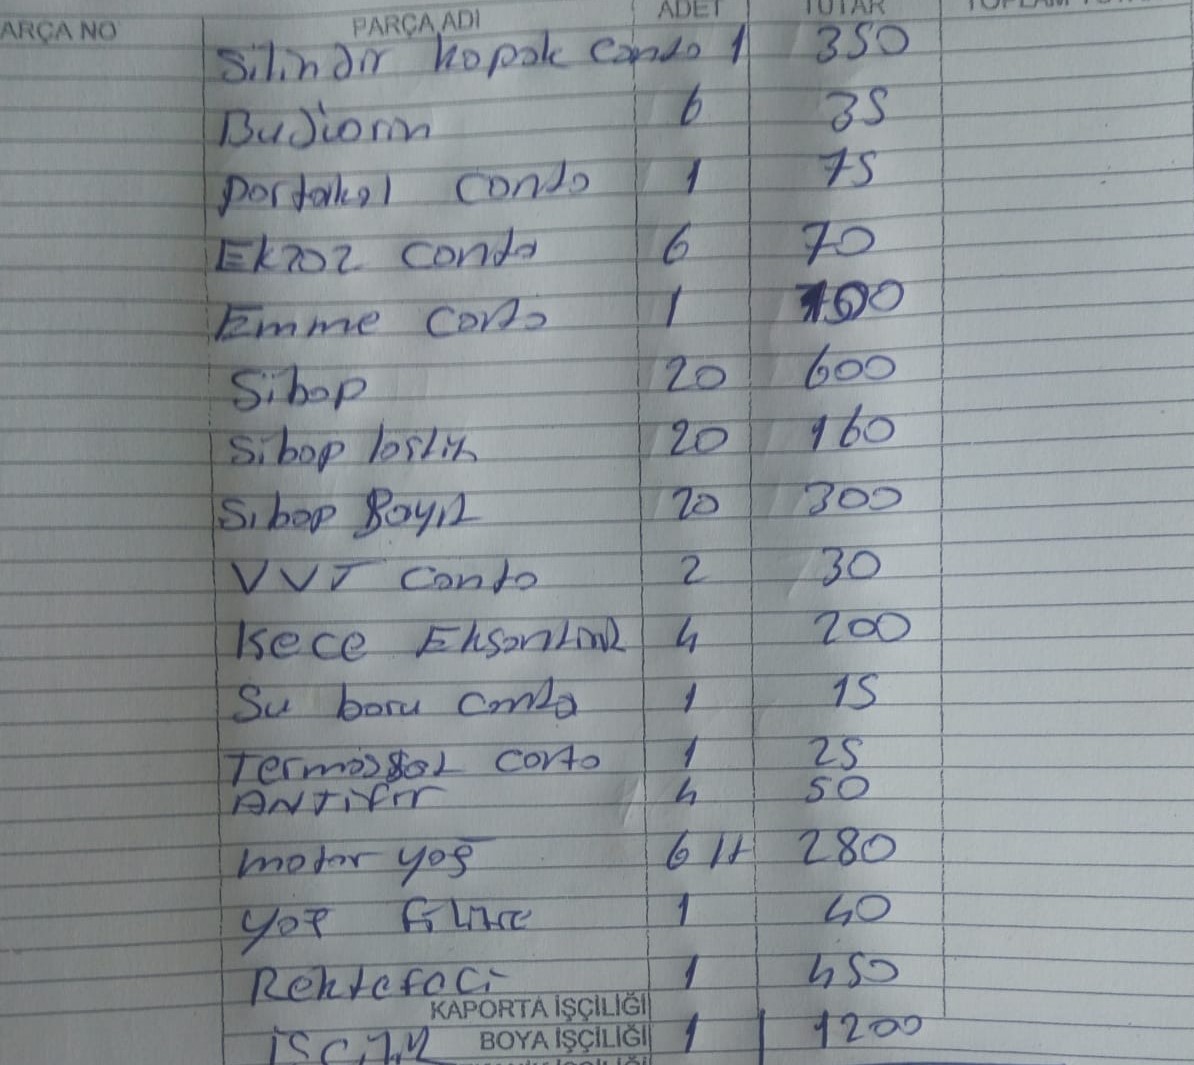 ARÇA NO PARÇA ADI ADET TUTAR
Silindir kapak conta 1 350
Bujiorin 6 35
portakal conta 1 75
Ekzoz conta 6 70
Emme conta 1
Sibop 20 600
Sibop lastik 20 160
Sibop 20 300
VVT conta 2 30
Kece Eksantirik 4 200
Su boru conta 1 15
Termosdat conta 1 25
ANTifir 4 50
motor yağ 6 lt 280
yağ filitre 1 40
Rektefaci 1 450
KAPORTA İŞÇİLİĞİ
işcilik BOYA İŞÇİLİĞİ 1 1200